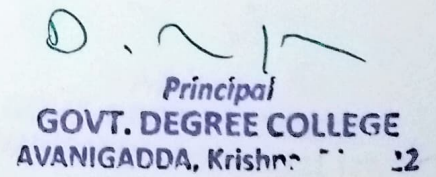 Principal
GOVT. DEGREE COLLEGE
AVANIGADDA,